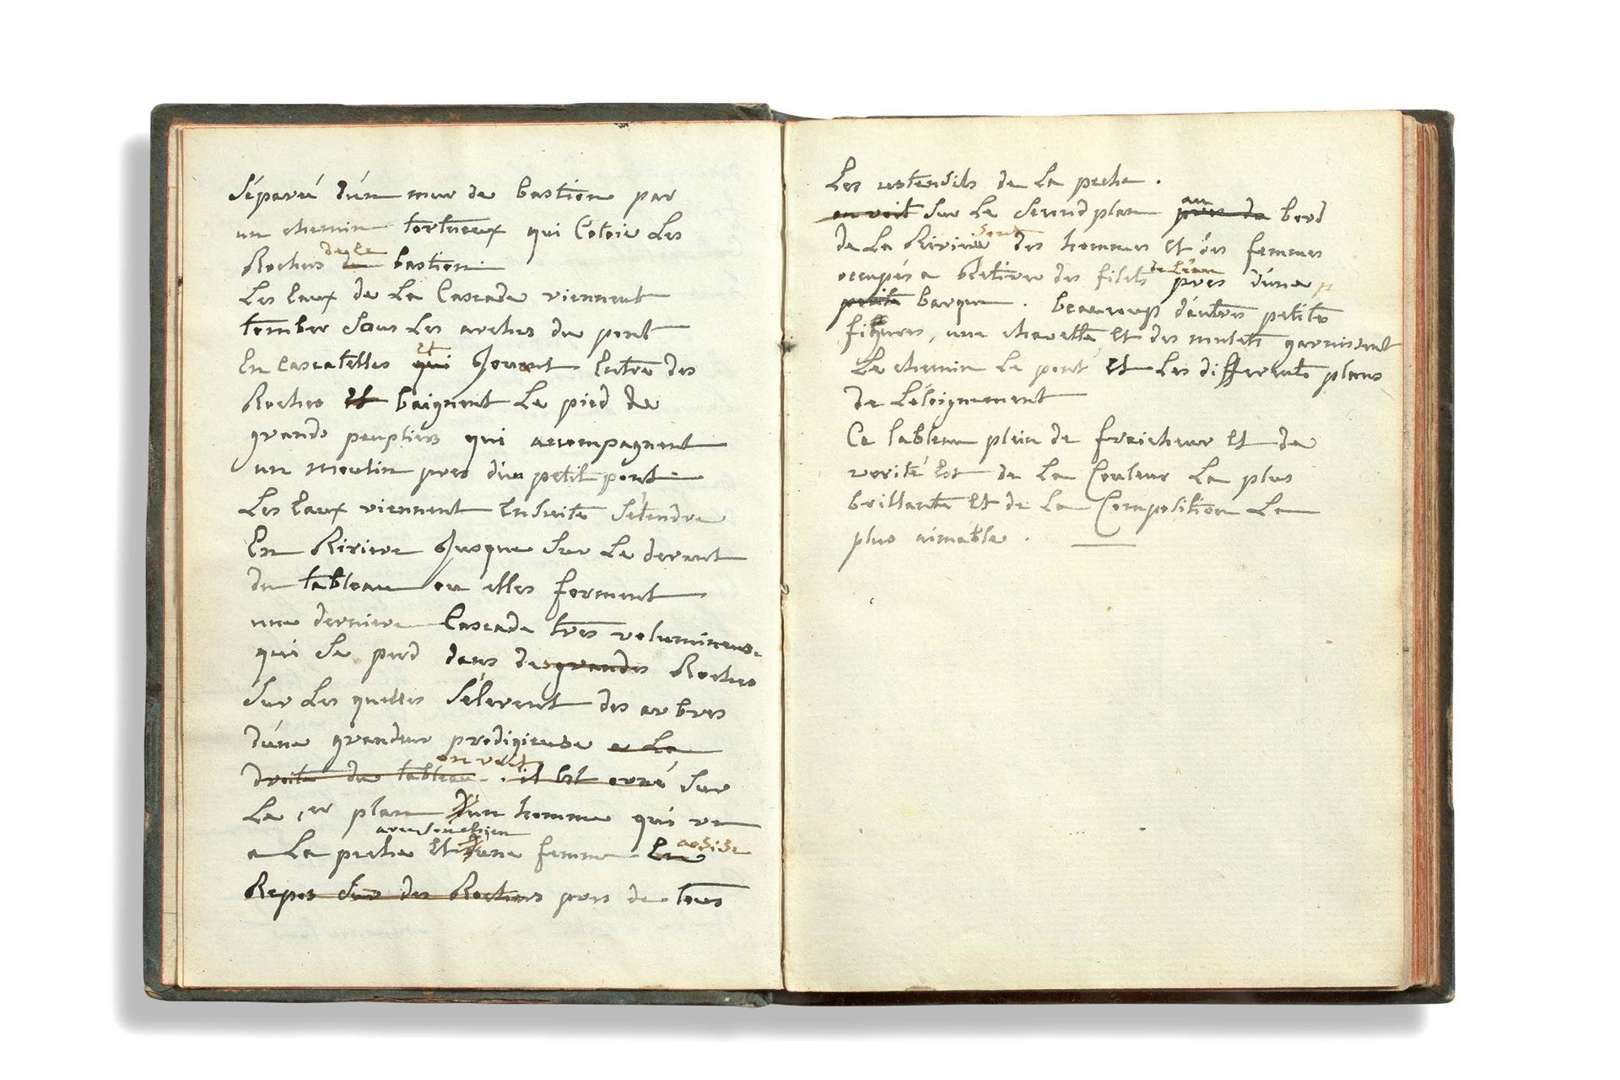 Séparé d'un mur de bastion par
un chemin tortueux qui Cotoie Les
Rochers de ce du bastion
Les Eaux de La Cascade viennent
tomber Sous Les arches du pont
En Cascatelles et qui Jouent Entre des
Roches Et baignent Le pied de
grands peupliers qui accompagnent
un moulin pres d'un petit pont
Les Eaux viennent Ensuite S'étendre
En Riviere Jusque Sur Le devant
du tableau ou elles forment
une derniere Cascade trés volumineuse
qui Se perd dans des grandes Roches
Sur Les quelles S'élevent des arbres
d'une grandeur prodigieuse a La
droite du tableau. on voit il Est orné Sur
Le 1er plan d'un homme qui va
avec son chien
a La peche Et d'une femme En assise
Repos Sur des Rochers pres de tous
Les ustensils de La peche.
on voit Sur Le Second plan au pres du bord
de La Riviere sont des hommes Et des femmes
occupés a Retirer des filets de L'eau pres d'une
petite barque. beaucoup d'autres petites
figures, une charette Et des mulets garnissent
Le chemin Le pont Et Les differents plans
de L'éloignement
Ce tableau plein de fraicheur Et de
verité Est de La Couleur La plus
brillante Et de La Composition La
plus aimable.